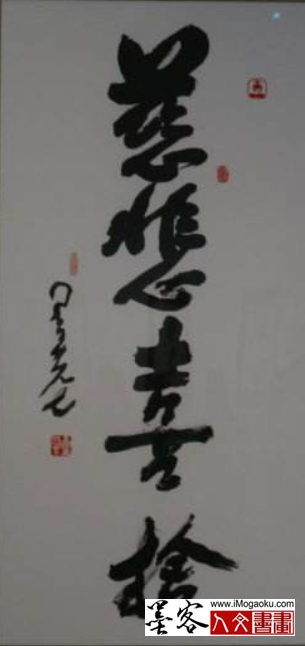 慈悲喜捨
墨客
www.iMogaoku.com
人文書畫